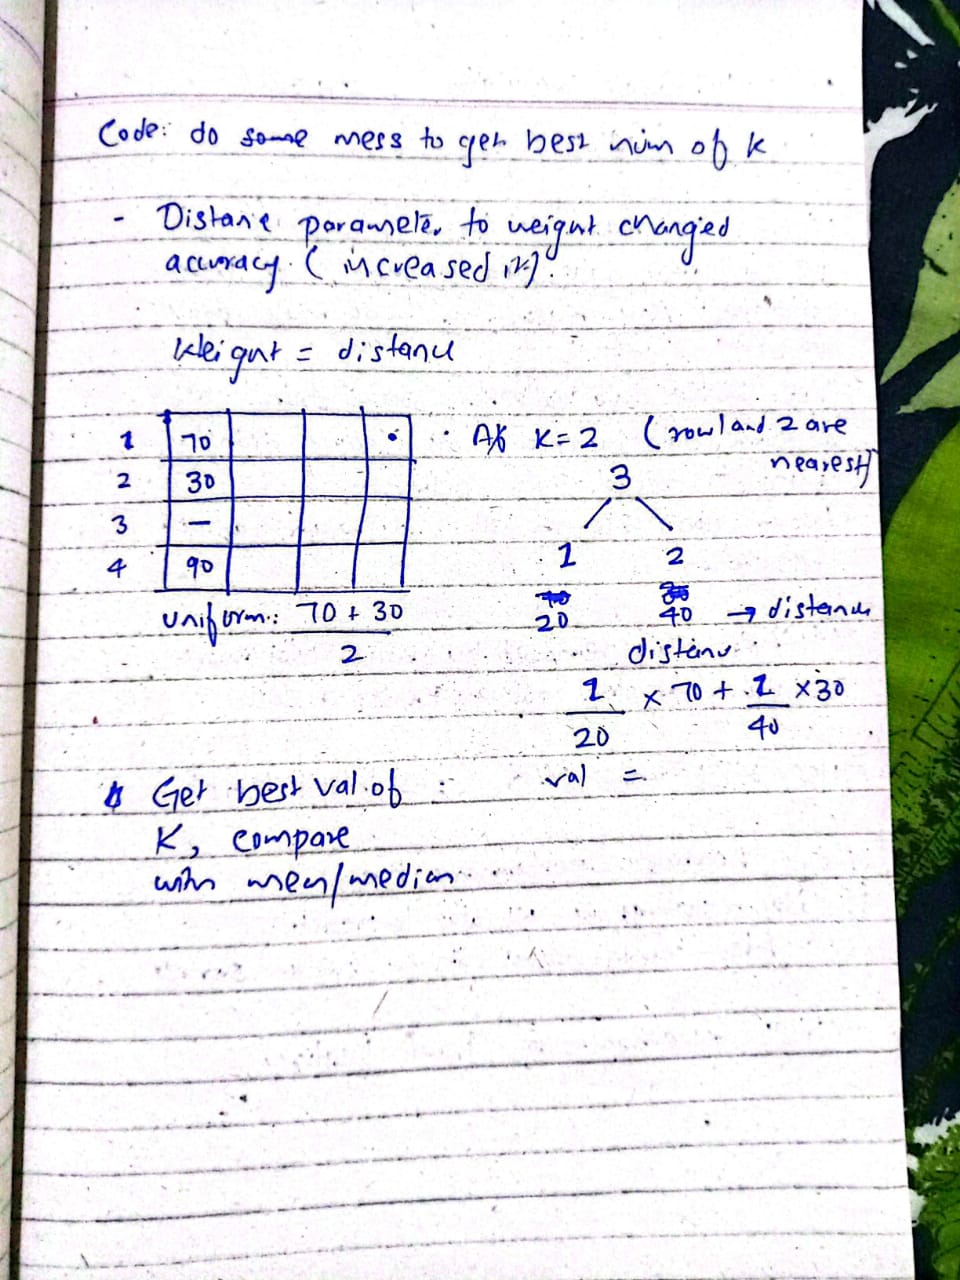 Code: do some mess to get best num of k
- Distance parameter to weight changed
accuracy. (increased it).
Weight = distance
1 70
2 30
3 —
4 90
uniform: 70 + 30
2
At K=2 (row 1 and 2 are
nearest)
3
1 2
20 40 → distance
distance
1 × 70 + 1 × 30
20 40
val =
Get best val. of
K, compare
with mean/median